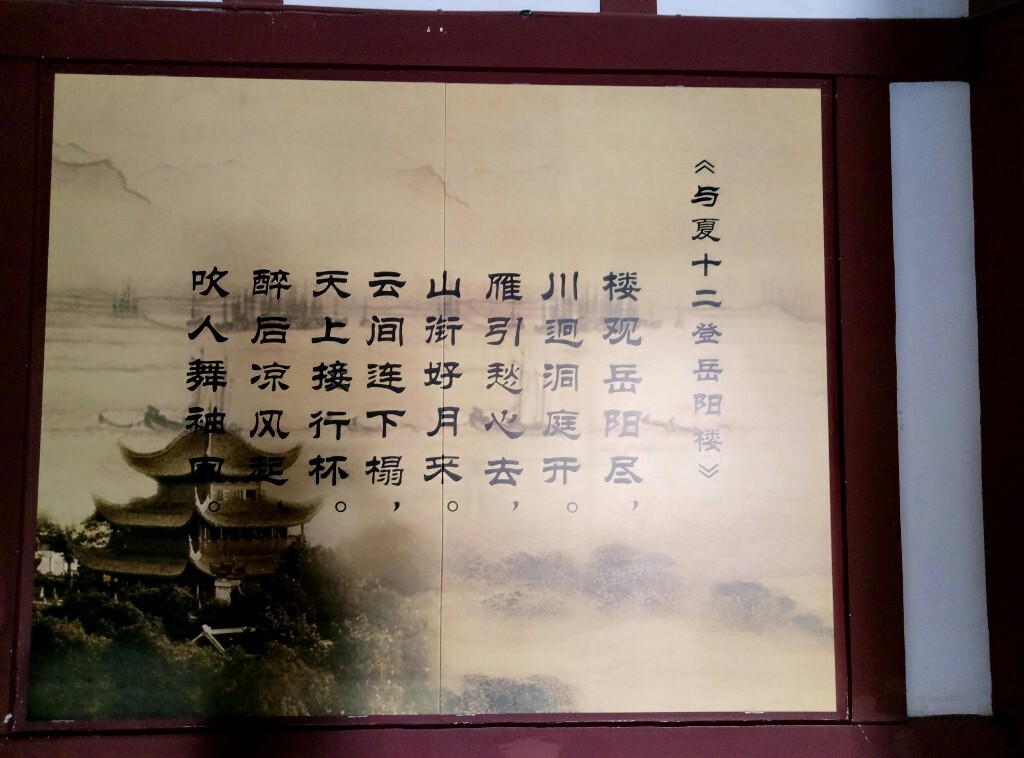 《与夏十二登岳阳楼》
楼观岳阳尽，
川迥洞庭开。
雁引愁心去，
山衔好月来。
云间连下榻，
天上接行杯。
醉后凉风起，
吹人舞袖回。